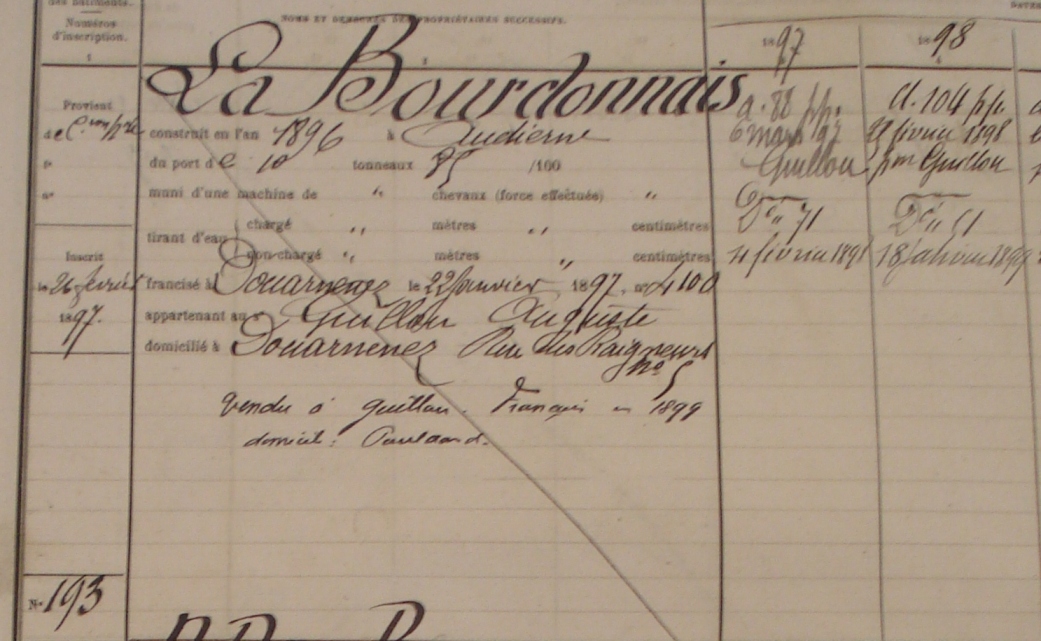 des bâtiments.
Numéros
d'inscription.
1
NOMS ET DEMEURES DES PROPRIÉTAIRES SUCCESSIFS.
1897
1898
La Bourdonnais
Provient
construit en l'an 1896 à Audierne
du port de 10 tonneaux 85 /100
muni d'une machine de " chevaux (force effectuée) "
tirant d'eau
chargé " mètres " centimètres
non-chargé " mètres " centimètres
Inscrit
le 26 février
1897.
francisé à Douarnenez le 22 Janvier 1897, n° 4100
appartenant au sr Guillou Auguste
domicilié à Douarnenez Rue des
no 5
Vendu à Guillou François en 1899
domicil:
a. 88 pp.
6 mars 97
Guillou
Do 71
4 février 1898
a. 104 pp.
février 1898
pm Guillou
Do 51
18 janvier 1899
No 193